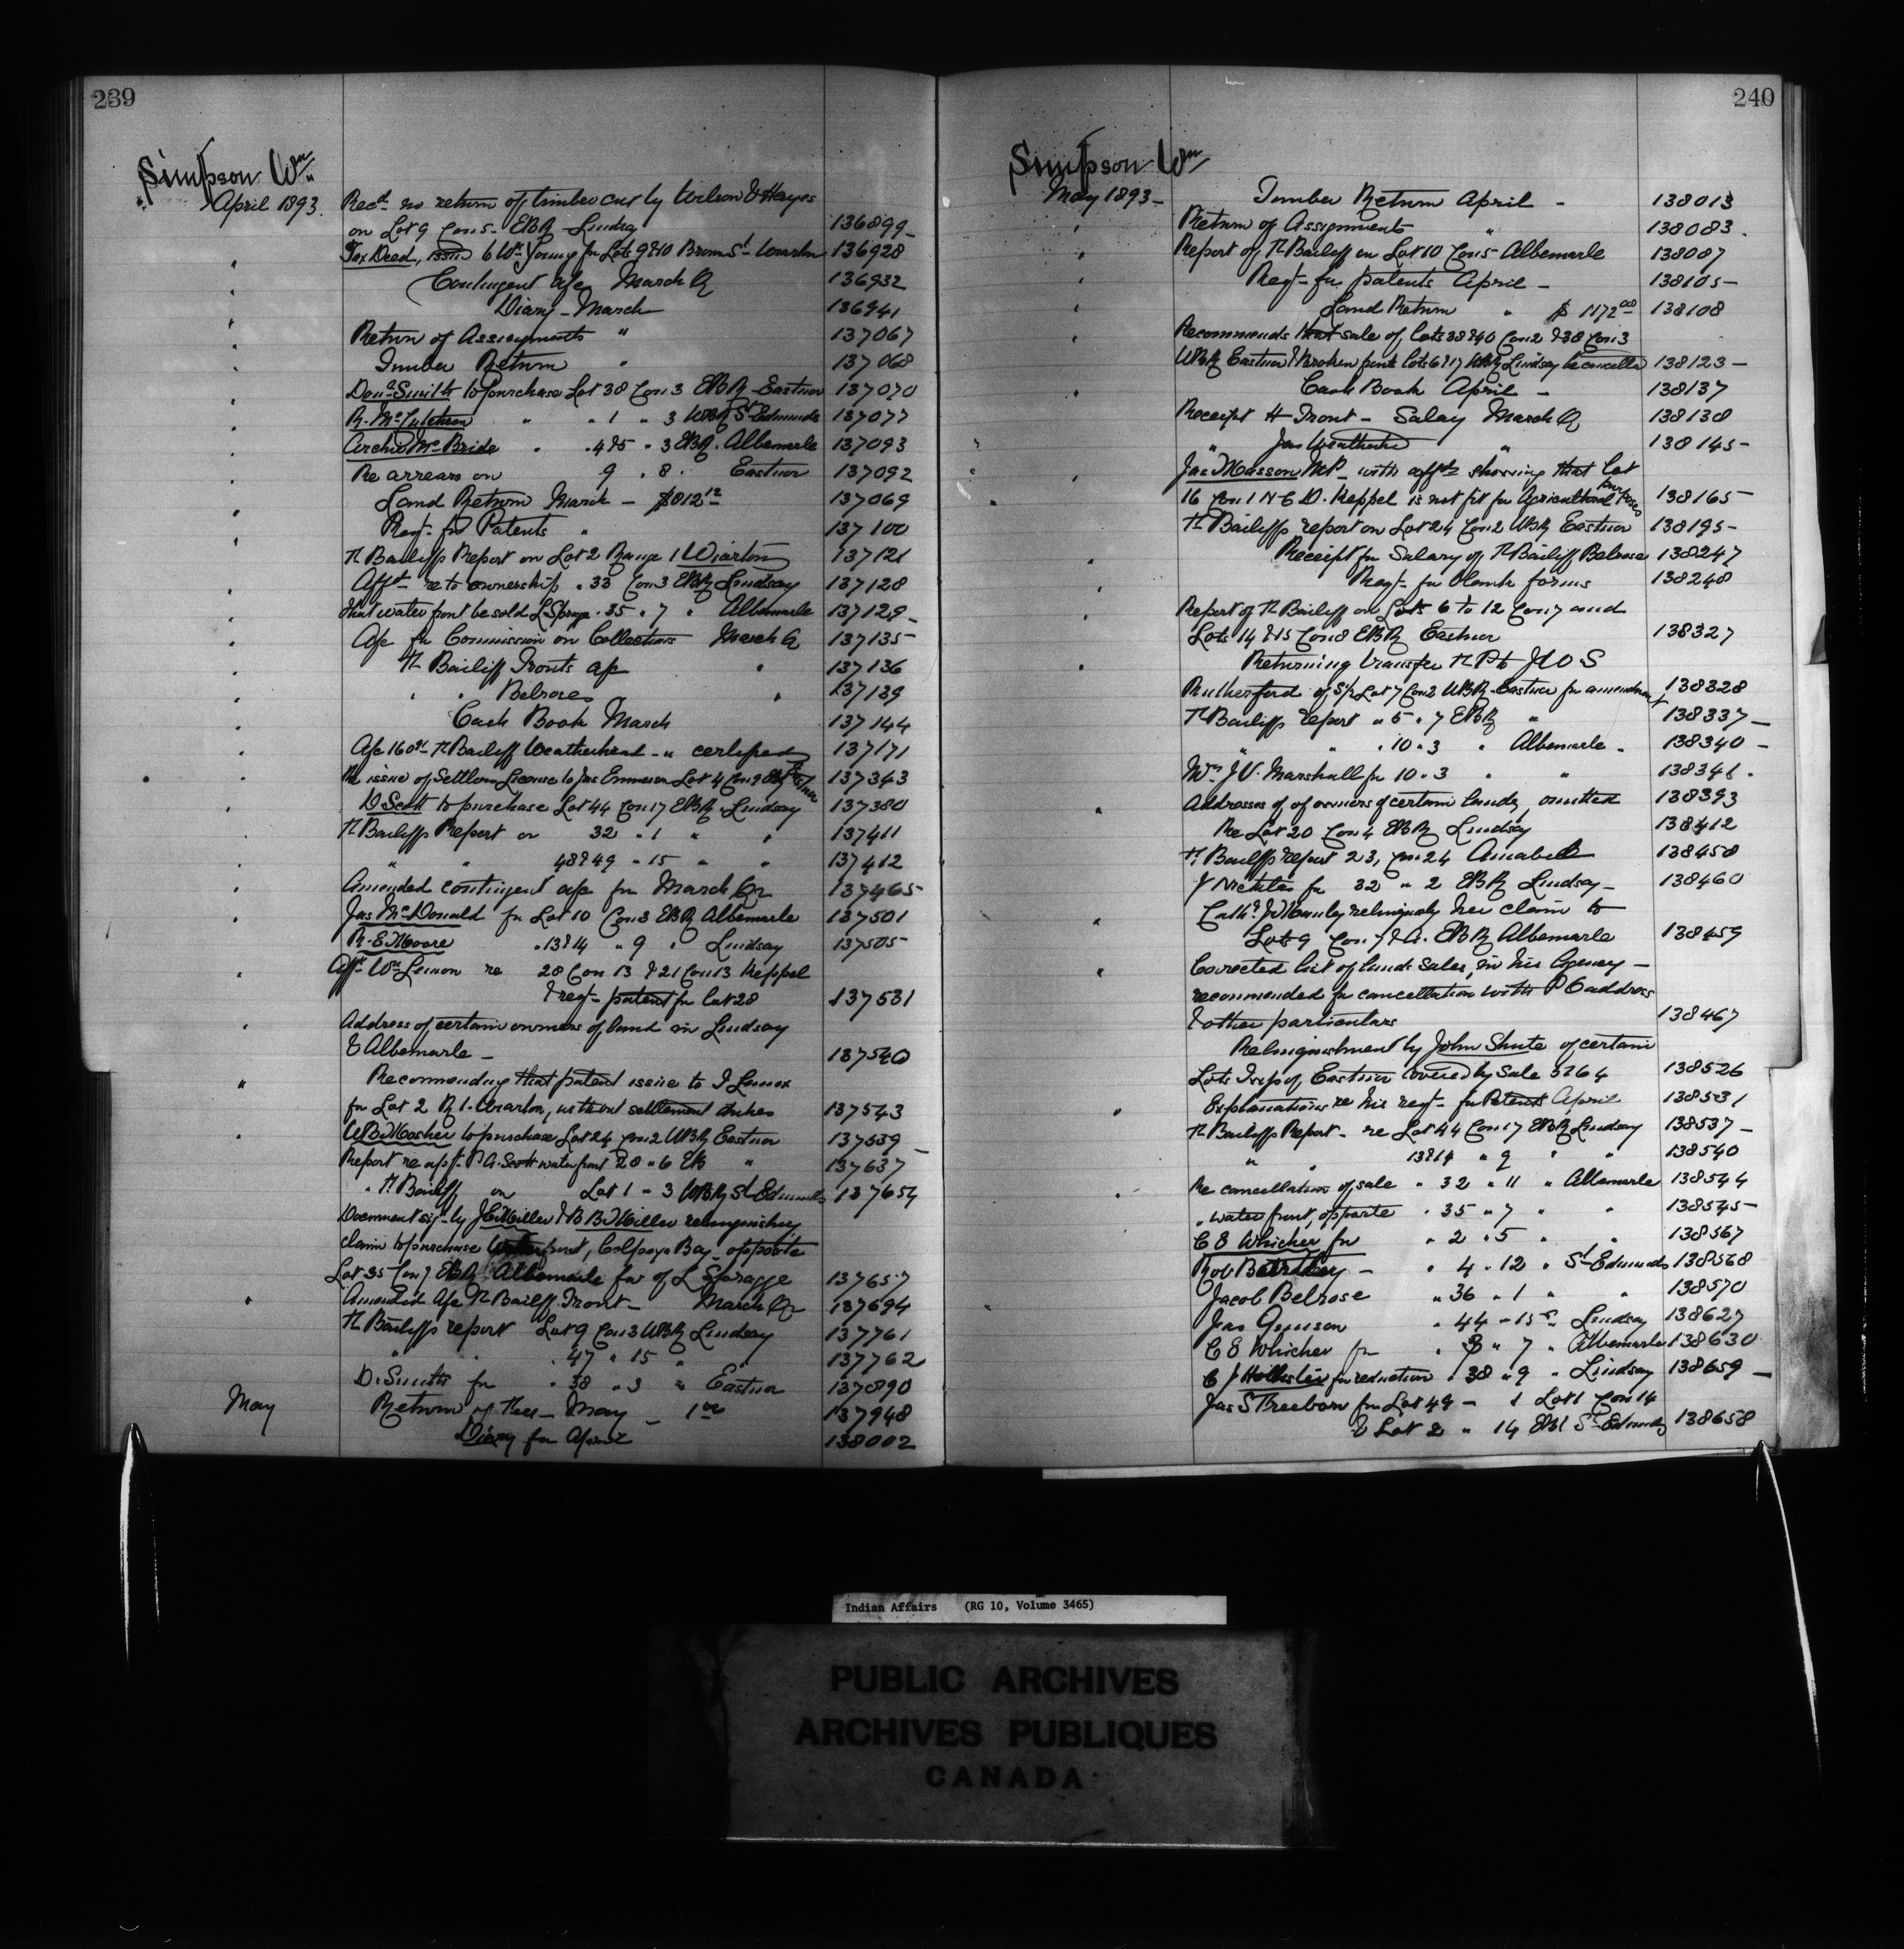 239
Simpson Wm
April 1893. Recd no return of timber cut by Wilson & Hayes
on Lot 9 Con 5 - EBR - Lindsay 136899
Tax Deed, issd to Wm Young for Lots 9&10 Brown St Wiarton 136928
Contingent a/c March Qr 136932
Diary - March 136941
Return of Assignments " 137067
Timber Return " 137068
Smith to purchase Lot 38 Con 3 EBR - Eastnor 137070
R. " " 1 " 3 WBR St Edmunds 137077
Archd McBride " 4&5 " 3 EBR. Albemarle 137093
Re arrears on 9 " 8 " Eastnor 137092
Land Return March - $812 12 137069
Reqt for Patents " 137100
Th Bailiffs Report on Lot 2 Range 1 Wiarton 137121
Affdt re to ownership " 33 Con 3 EBR Lindsay 137128
that water front be sold L Spragge " 35 " 7 " Albemarle 137129
A/c for Commission on Collections March Qr 137135
Th Bailiff Fronts a/c " 137136
" " Belroses " 137139
Cash Book March 137144
A/c 160 Th Bailiff Weatherhead - " certified 137171
Re issue of Settlers License to Jas Emmerson Lot 4 Con 9 EBR Eastnor 137343
D Scott to purchase Lot 44 Con 17 EBR Lindsay 137380
Th Bailiffs Report on 32 " 1 " " 137411
" " 48&49 " 15 " " 137412
Amended contingent a/c for March Qr 137465
Jas McDonald for Lot 10 Con 3 EBR Albemarle 137501
R. E Moore " 13&14 " 9 " Lindsay 137505
Affdt Wm Lemon re 28 Con 13 & 21 Con 13 Keppel
& reqt patent for lot 28 137531
Address of certain owners of land in Lindsay
& Albemarle - 137540
Recommending that patent issue to J Lemox
for Lot 2 R 1. Wiarton, without settlement duties 137543
WB Mosher to purchase Lot 24 Con 2 WBR Eastnor 137539
Report re appt. P. A. Scott water front 28 " 6 EB " 137637
" Th Bailiff on Lot 1 " 3 WBR St Edmunds 137654
Document sigd by J E Miller & B B Miller relinquishing
claim to purchase Waterfront, Colpoys Bay opposite
Lot 35 Con 7 EBR Albemarle fav of L Spragge 137657
Amended A/c Th Bailiff Front - March Qr 137694
Th Bailiffs report Lot 9 Con 3 WBR Lindsay 137761
" " 47 " 15 " 137762
D. Smith for " 38 " 3 " Eastnor 137890
May Return of Fees - May - 1 00 137948
Diary for April 138002
240
Simpson Wm
May 1893 - Timber Return April - 138013
Return of Assignments " 138083
Report of Th Bailiff on Lot 10 Con 5 Albemarle 138087
Reqt for patents April - 138105
Land Return " $ 1172 00 138108
Recommends that sale of Lots 38&40 Con 2 & 38 Con 3
WBR Eastnor & Broken front Lots 6&17 WBR Lindsay be cancelled 138123
Cash Book April - 138137
Receipt H Front - Salary March Qr 138138
" Jas Weatherhd " 138145
Jas Masson MP. with affdts showing that Lot
16 Con 1 N C D. Keppel is not fit for Agricultural purposes 138165
Th Bailiffs report on Lot 24 Con 2 WBR Eastnor 138195
Receipt for Salary of Th Bailiff Belrose 138247
Reqt for blank forms 138248
Report of Th Bailiff on Lots 6 to 12 Con 7 and
Lots 14 & 15 Con 8 EBR Eastnor 138327
Returning transfer Th P to J W O S
Rutherford of S/2 Lot 7 Con 2 WBR Eastnor for amendment 138328
Th Bailiffs report " 5 " 7 EBR " 138337
" " " 10 " 3 " Albemarle 138340
Wm J V. Marshall for 10 " 3 " " 138341
Addresses of of owners of certain lands, omitted 138393
Re Lot 20 Con 4 EBR Lindsay 138412
Th Bailiffs report 23, Con 24 Amabel 138450
J for 32 " 2 EBR Lindsay - 138460
Cathe J Manley relinquishg her claim to
Lot 9 Con 7 EBR Albemarle 138459
Corrected list of land sales, in his Agency -
recommended for cancellation with P O address
& other particulars 138467
Relinquishment by John Shute of certain
Lots Twsp of Eastnor covered by Sale 138526
Explanations re his reqt for Patents April 138531
Th Bailiffs Report - re Lot 44 Con 17 EBR Lindsay 138537
" " 13&14 " 9 " " 138540
Re cancellation of sale " 32 " 11 " Albemarle 138544
" water front, opposite " 35 " 7 " " 138545
C E Whicher for " 2 " 5 " " 138567
Rob - " 4 " 12 " St Edmunds 138568
Jacob Belrose " 36 " 1 " " 138570
Jas " 44 " 15 " Lindsay 138627
C E Whicher for " 8 " 7 " Albemarle 138630
C J Hollister for reduction " 38 " 9 " Lindsay 138659
Jas S Freeborn for Lot 49 - 1 Lot 1 Con 14
& Lot 2 " 14 EBR St Edmunds 138658
Indian Affairs (RG 10, Volume 3465)
PUBLIC ARCHIVES
ARCHIVES PUBLIQUES
CANADA